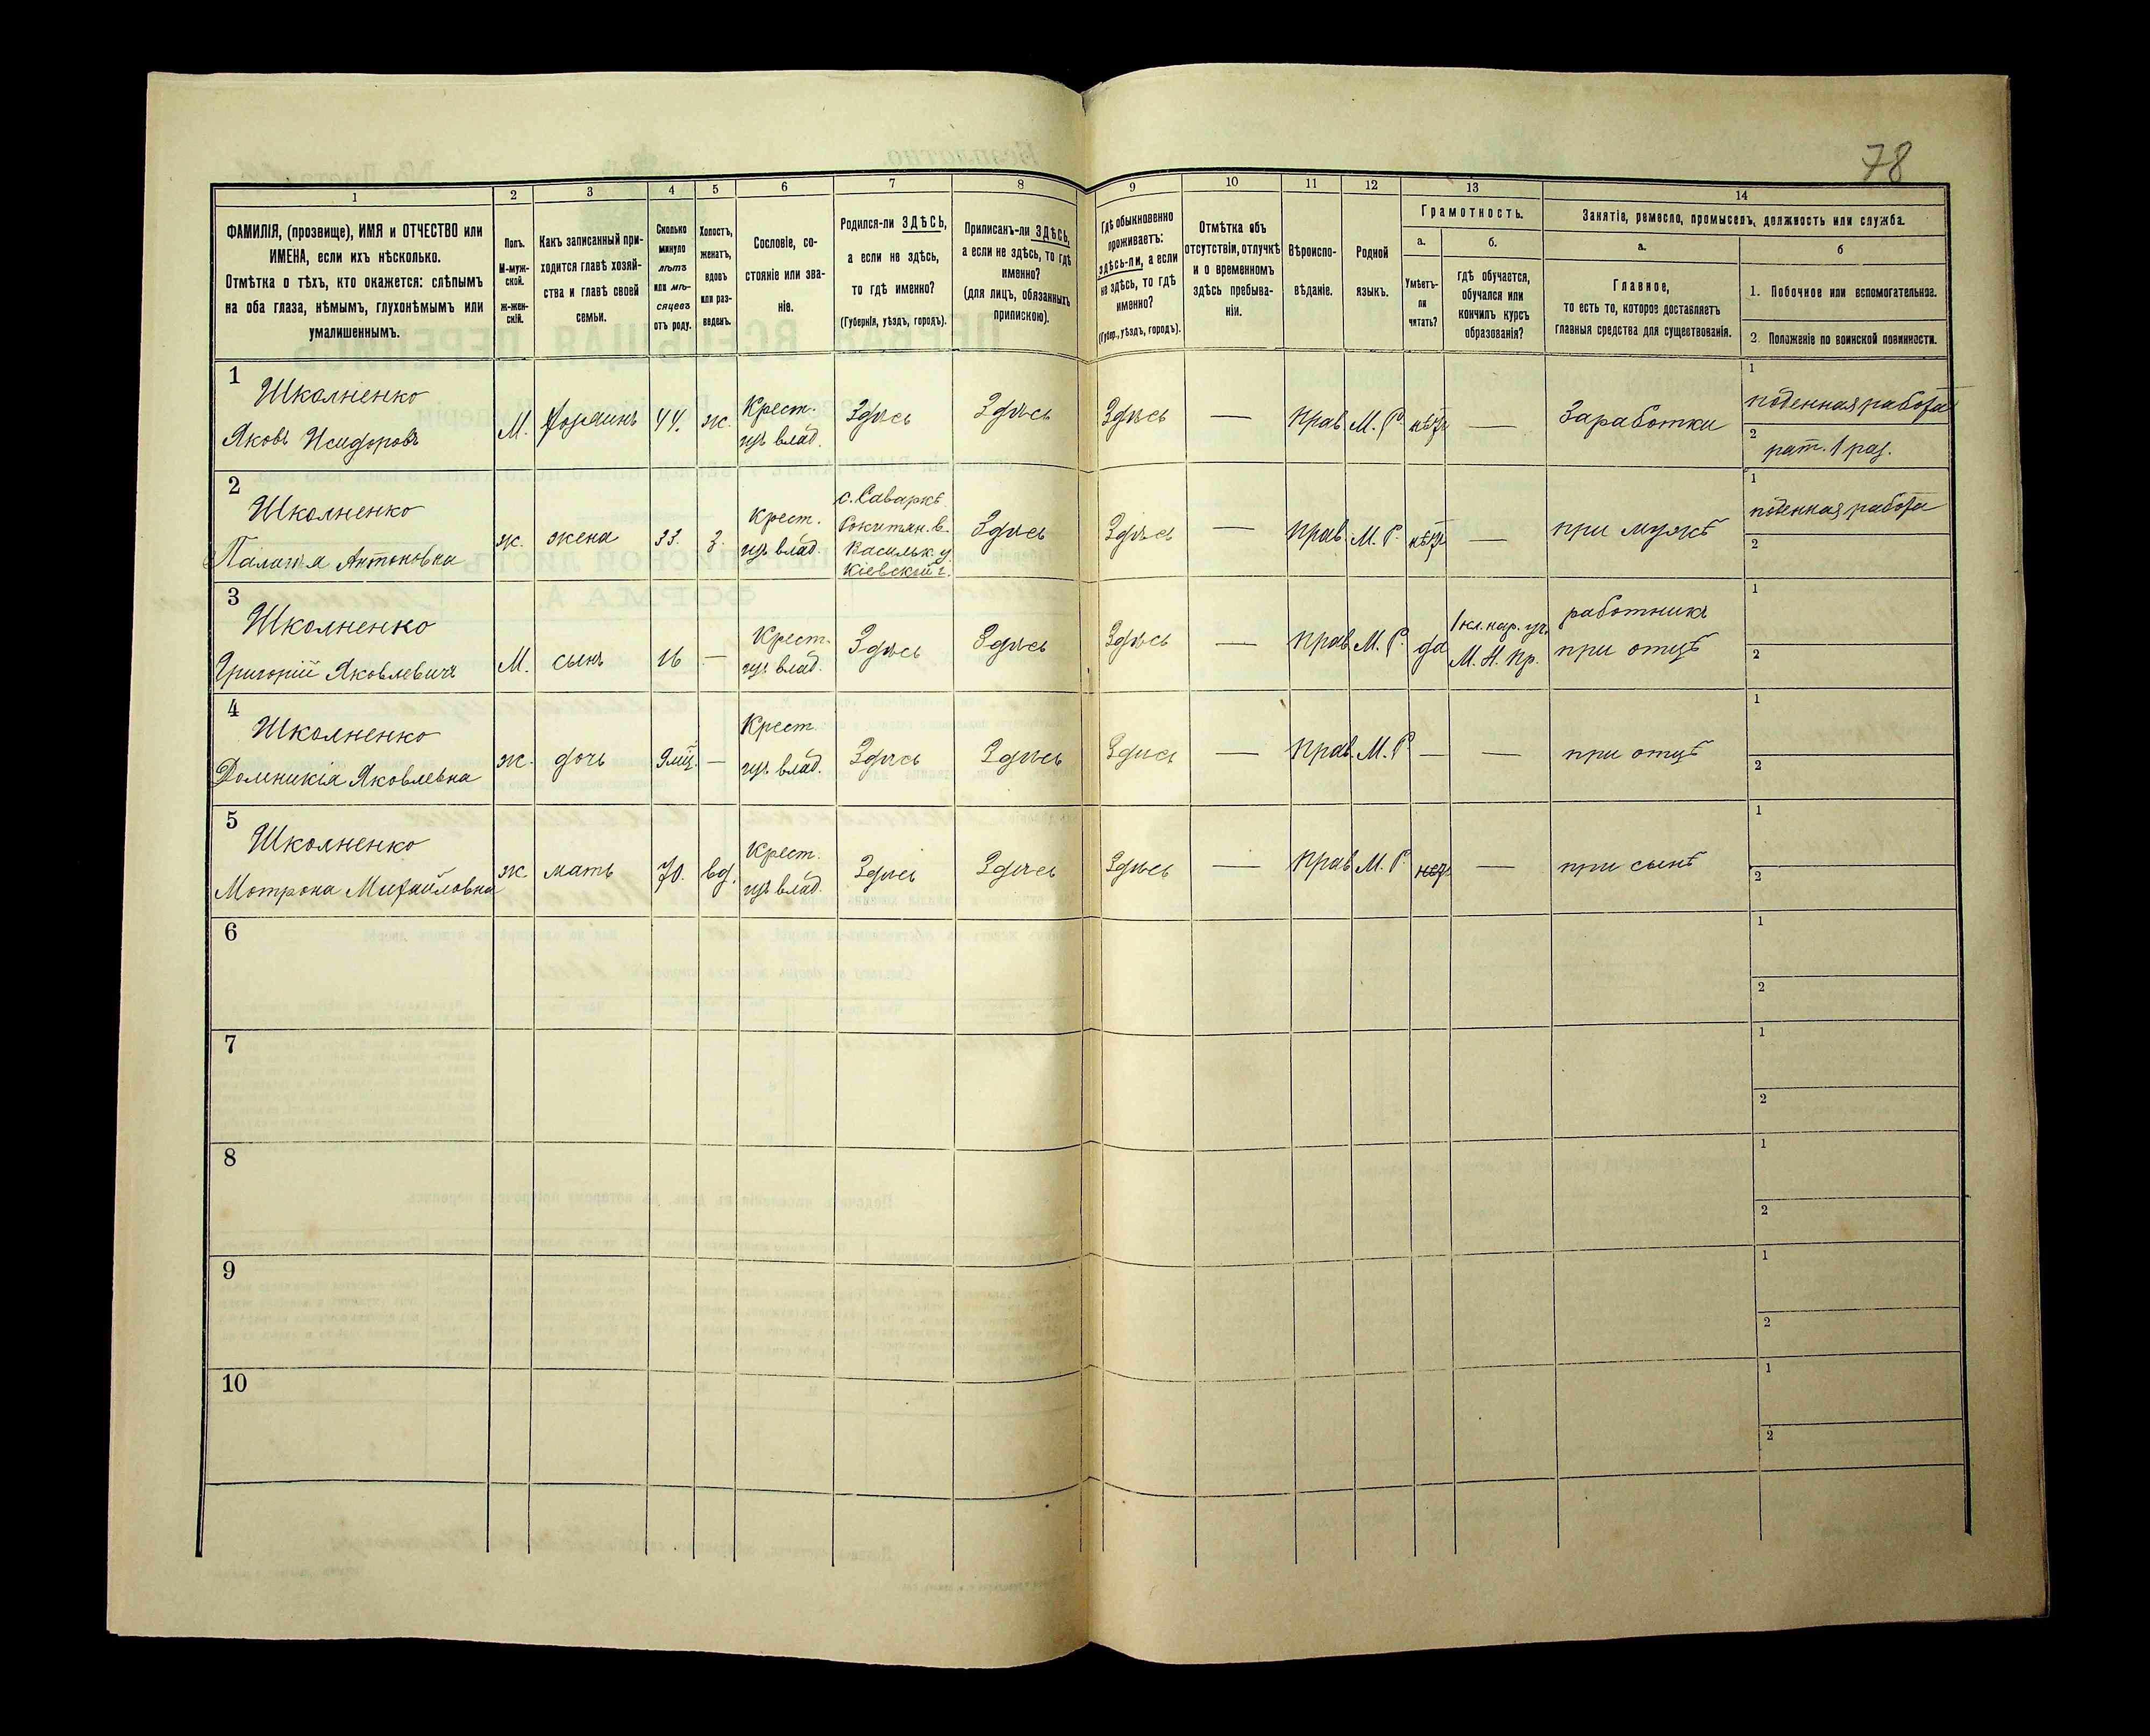 78
1
2
3
4
5
6
7
8
9
10
11
12
13
14
ФАМИЛІЯ, (прозвище), ИМЯ и ОТЧЕСТВО или
ИМЕНА, если ихъ нѣсколько.
Отмѣтка о тѣхъ, кто окажется: слѣпымъ
на оба глаза, нѣмымъ, глухонѣмымъ или
умалишеннымъ.
Полъ.
М-муж-
ской.
Ж-жен-
скій.
Какъ записанный при-
ходится главѣ хозяй-
ства и главѣ своей
семьи.
Сколько
минуло
лѣтъ
или мѣ-
сяцевъ
отъ роду.
Холостъ,
женатъ,
вдовъ
или раз-
веденъ.
Сословіе, со-
стояніе или зва-
ніе.
Родился-ли ЗДѢСЬ,
а если не здѣсь,
то гдѣ именно?
(Губернія, уѣздъ, городъ).
Приписанъ-ли ЗДѢСЬ,
а если не здѣсь, то гдѣ
именно?
(для лицъ, обязанныхъ
припискою).
Гдѣ обыкновенно
проживаетъ:
здѣсь-ли, а если
не здѣсь, то гдѣ
именно?
(Губер., уѣздъ, городъ).
Отмѣтка объ
отсутствіи, отлучкѣ
и о временномъ
здѣсь пребыва-
ніи.
Вѣроиспо-
вѣданіе.
Родной
языкъ.
Грамотность.
а.
б.
Умѣетъ-
ли
читать?
гдѣ обучается,
обучался или
кончилъ курсъ
образованія?
Занятіе, ремесло, промыселъ, должность или служба.
а.
б
Главное,
то есть то, которое доставляетъ
главныя средства для существованія.
1. Побочное или вспомогательное.
2. Положеніе по воинской повинности.
1
Школненко
Яковъ Исидоровъ
М.
хозяинъ
44.
ж.
Крест.
изъ влад.
Здѣсь
Здѣсь
Здѣсь
—
прав.
М. Р.
нѣтъ
—
Заработки
1
поденная работа
2
рат. 1 раз.
2
Школненко
Палагія Антоновна
ж.
жена
33.
з.
Крест.
изъ влад.
с. Саварка
Рокитян. в.
Васильк. у.
Кіевской г.
Здѣсь
Здѣсь
—
прав.
М. Р.
нѣтъ
—
при мужѣ
1
поденная работа
2
3
Школненко
Григорій Яковлевичъ
М.
сынъ
16
—
Крест.
изъ влад.
Здѣсь
Здѣсь
Здѣсь
—
прав.
М. Р.
да
1 кл. нар. уч.
М. Н. Пр.
работникъ
при отцѣ
1
2
4
Школненко
Домникія Яковлевна
ж.
дочь
9 мѣц.
—
Крест.
изъ влад.
Здѣсь
Здѣсь
Здѣсь
—
прав.
М. Р.
—
—
при отцѣ
1
2
5
Школненко
Мотрона Михайловна
ж.
мать
70.
вд.
Крест.
изъ влад.
Здѣсь
Здѣсь
Здѣсь
—
прав.
М. Р.
нѣтъ
—
при сынѣ
1
2
6
1
2
7
1
2
8
1
2
9
1
2
10
1
2